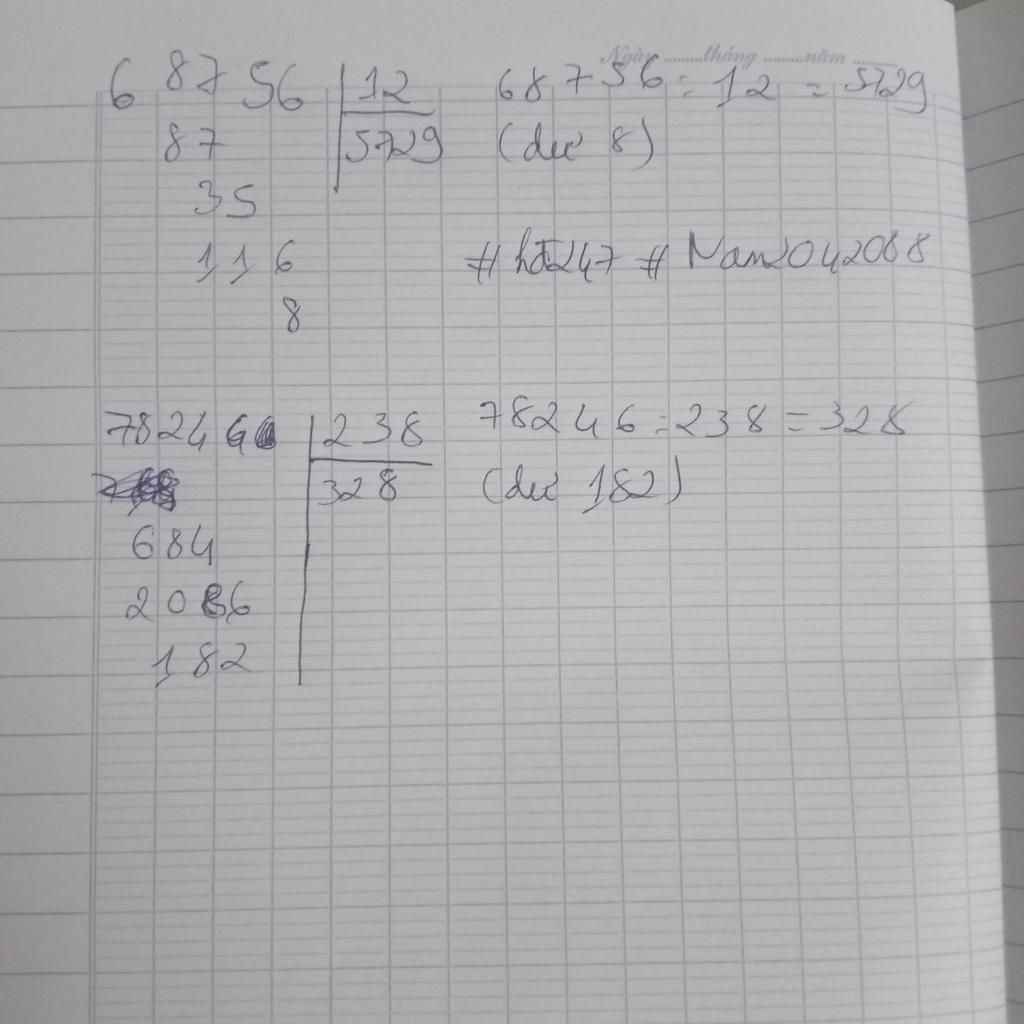 Ngày ........tháng ........năm ........
68756 12 68756 : 12 = 5729
87 5729 (dư 8)
35
116 #hđ247 #Nam2042068
8
78246 238 78246 : 238 = 328
328 (dư 182)
684
2086
182